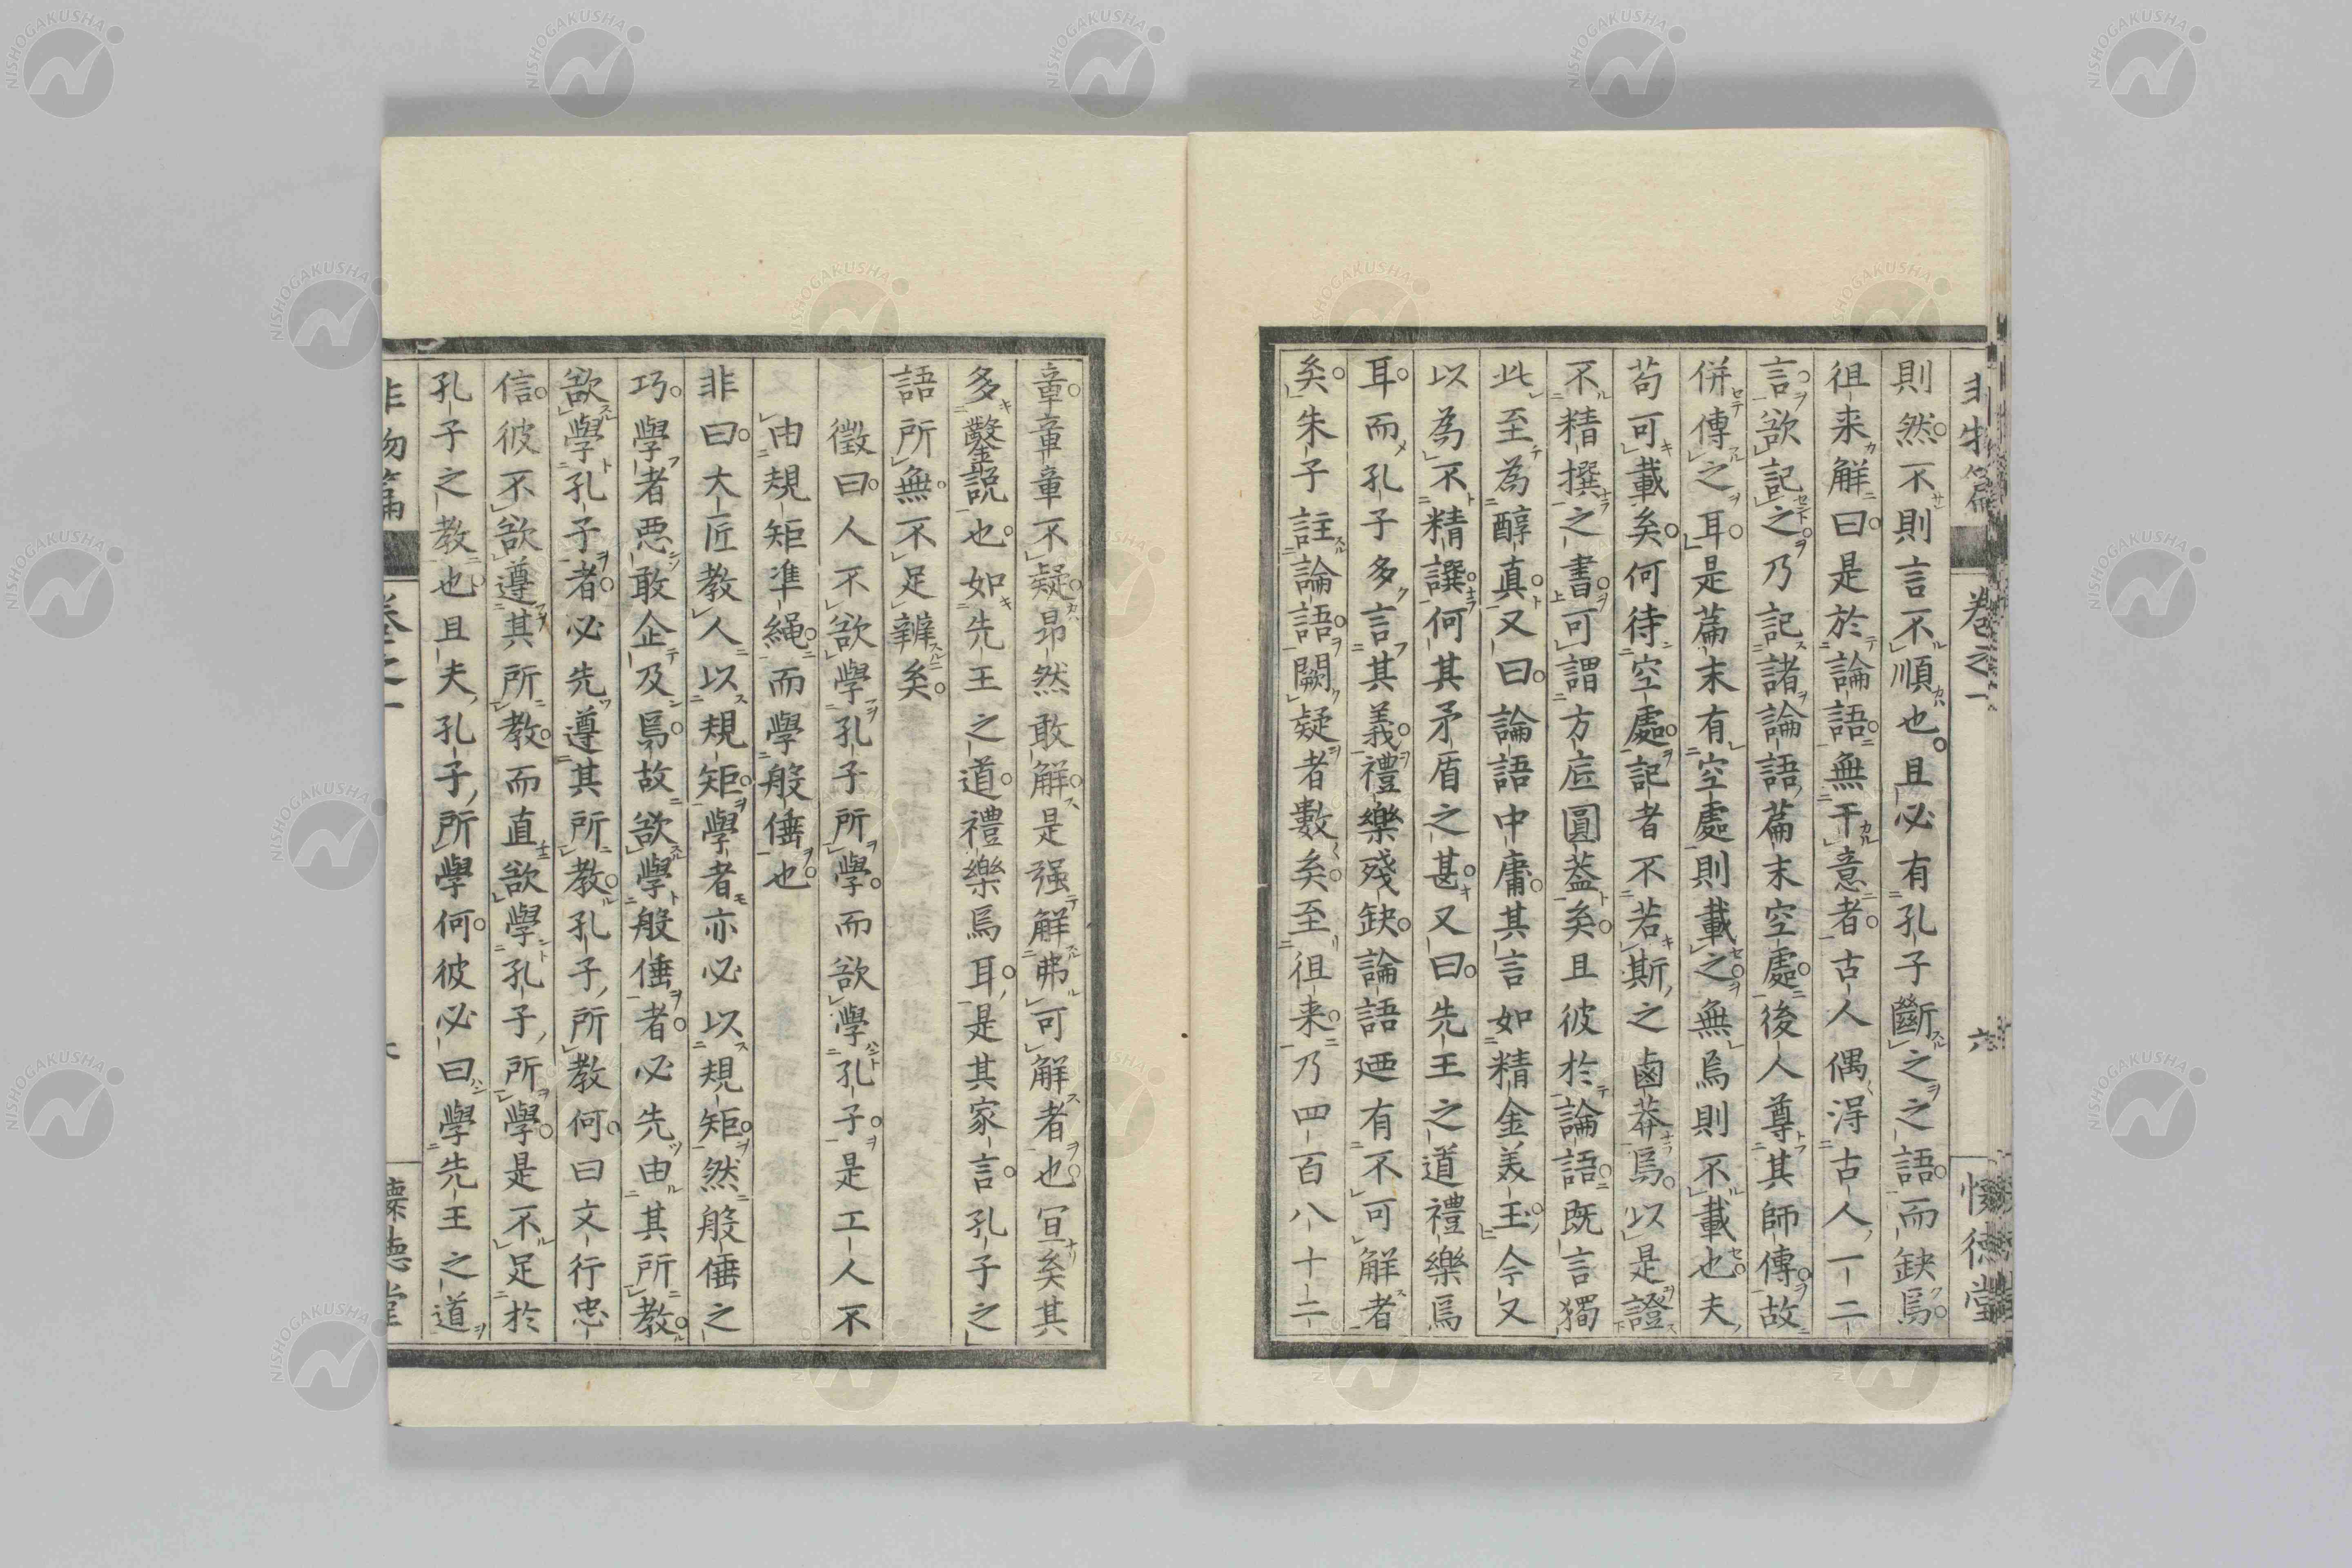 則然不則言不順也且必有孔子斷之之語而缺焉
徂来解曰是於論語無干意者古人偶淂古人一二
言欲記之乃記諸論語篇末空處後人尊其師傳故
併傳之耳是篇末有空處則載之無焉則不載也夫
苟可載矣何待空處記者不若斯之鹵莽焉以是證
不精撰之書可謂方底圓蓋矣且彼於論語既言獨
此至為醇真又曰論語中庸其言如精金美玉今又
以為不精譔何其矛盾之甚又曰先王之道禮樂焉
耳而孔子多言其義禮樂殘缺論語廼有不可解者
矣朱子註論語闕疑者數矣至徂来乃四百八十二
章章章不疑昂然敢解是强解弗可解者也宜矣其
多鑿說也如先王之道禮樂焉耳是其家言孔子之
語所無不足辨矣
徵曰人不欲學孔子所學而欲學孔子是工人不
由規矩準繩而學般倕也
非曰大匠教人以規矩學者亦必以規矩然般倕之
巧學者惡敢企及焉故欲學般倕者必先由其所教
欲學孔子者必先遵其所教孔子所教何曰文行忠
信彼不欲遵其所教而直欲學孔子所學是不足於
孔子之教也且夫孔子所學何彼必曰學先王之道
非物篇 卷之一 六 懷德堂
非物篇 卷之一 懷德堂
NISHOGAKUSHA